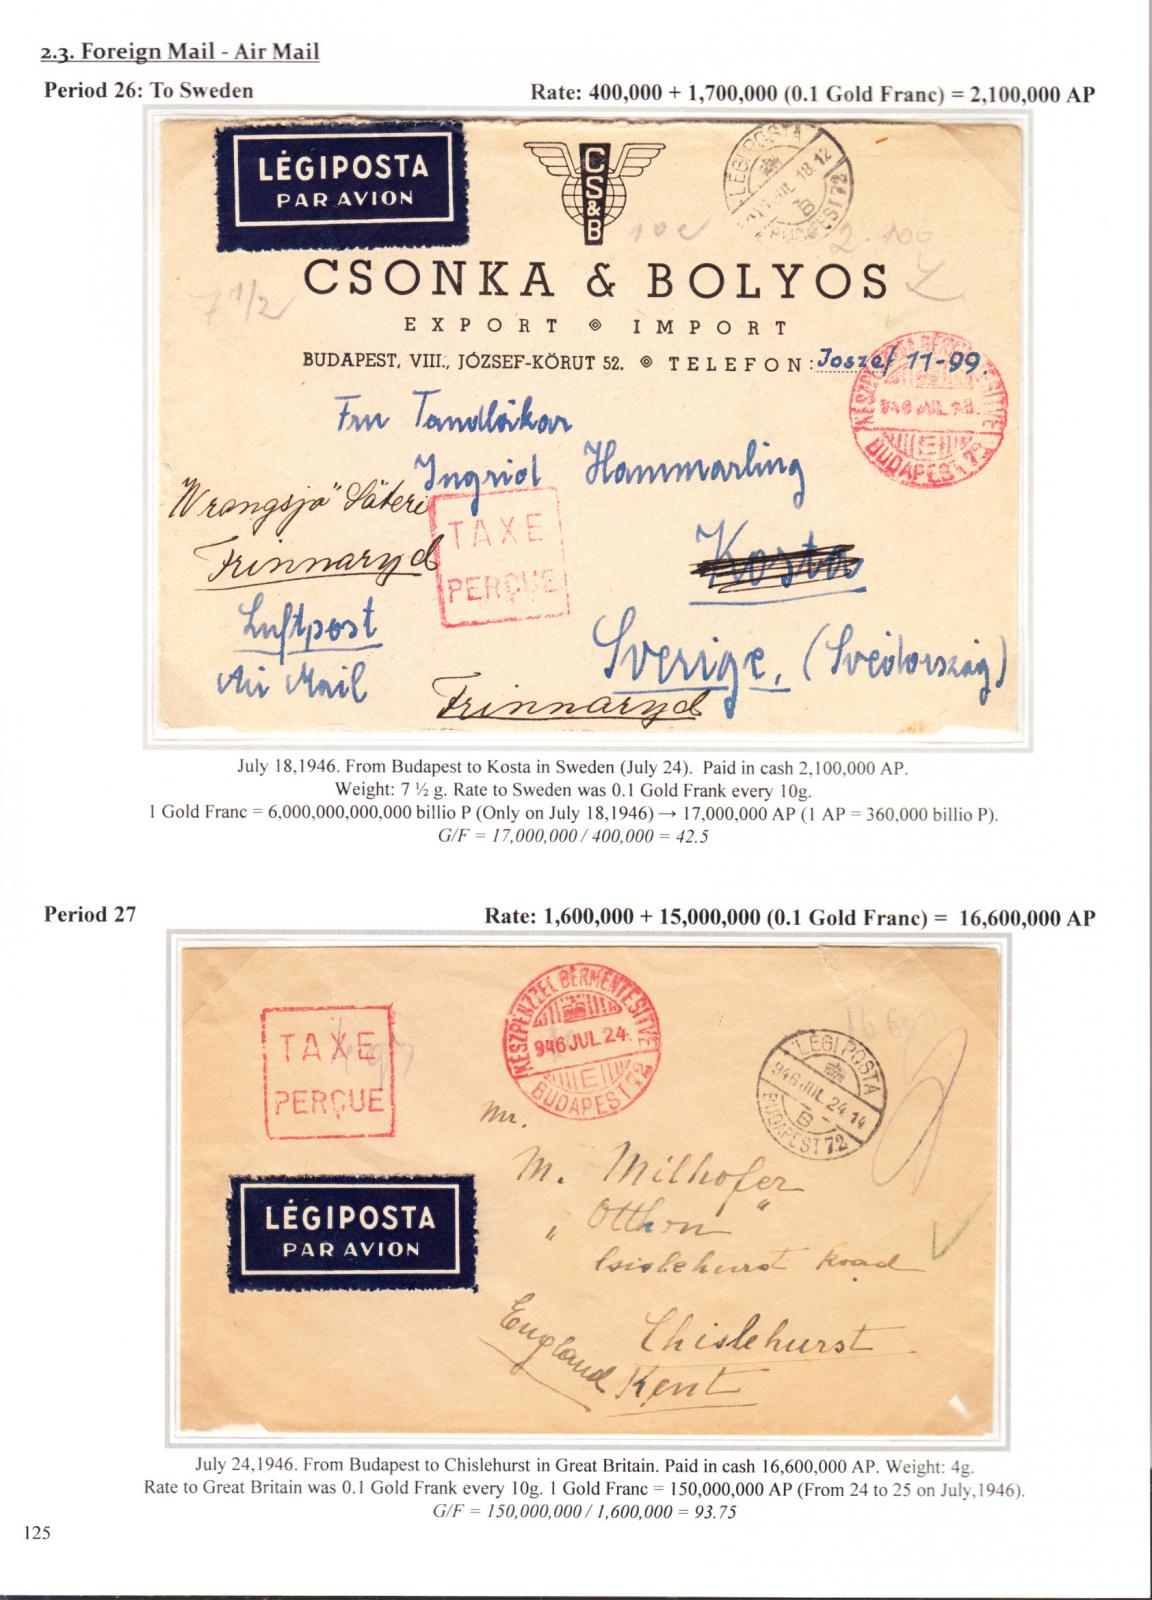 2.3. Foreign Mail - Air Mail
Period 26: To Sweden
Rate: 400,000 + 1,700,000 (0.1 Gold Franc) = 2,100,000 AP
LÉGIPOSTA
PAR AVION
CS&B
LÉGIPOSTA
JUL 18.12
B
BUDAPEST 72
10c
2.100
7 1/2
CSONKA & BOLYOS
EXPORT ⌾ IMPORT
BUDAPEST, VIII., JÓZSEF-KÖRUT 52. ⌾ TELEFON: Joszef 11-99.
KÉSZPÉNZZEL BÉRMENTESITVE
946 JUL 18.
E
BUDAPEST 72
Fru Tandläkar
Ingrid Hammarling
"Wrangsjö" Säteri
Frinnaryd
TAXE
PERÇUE
Kosta
Luftpost
Air Mail
Sverige, (Svédország)
Frinnaryd
July 18,1946. From Budapest to Kosta in Sweden (July 24). Paid in cash 2,100,000 AP.
Weight: 7 ½ g. Rate to Sweden was 0.1 Gold Frank every 10g.
1 Gold Franc = 6,000,000,000,000 billio P (Only on July 18,1946) → 17,000,000 AP (1 AP = 360,000 billio P).
G/F = 17,000,000 / 400,000 = 42.5
Period 27
Rate: 1,600,000 + 15,000,000 (0.1 Gold Franc) = 16,600,000 AP
TAXE
PERÇUE
KÉSZPÉNZZEL BÉRMENTESITVE
946 JUL 24.
E
BUDAPEST 72
LÉGIPOSTA
946 JUL 24.14
B
BUDAPEST 72
Mr.
M. Milhofer
"Otthon"
Csislehurst Road
LÉGIPOSTA
PAR AVION
Chislehurst
England
Kent
July 24,1946. From Budapest to Chislehurst in Great Britain. Paid in cash 16,600,000 AP. Weight: 4g.
Rate to Great Britain was 0.1 Gold Frank every 10g. 1 Gold Franc = 150,000,000 AP (From 24 to 25 on July,1946).
G/F = 150,000,000 / 1,600,000 = 93.75
125